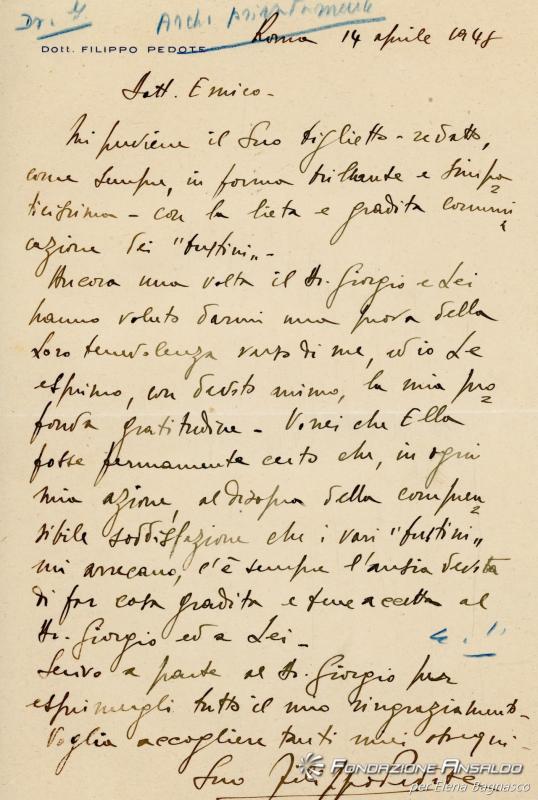 Dr. G
Archi privatamente
DOTT. FILIPPO PEDOTE
Roma 14 aprile 1948
Dott. Enrico -
Mi perviene il Suo biglietto - redatto,
come sempre, in forma brillante e simpa=
ticissima - con la lieta e gradita comuni=
cazione dei "fustini" -
Ancora una volta il Dr. Giorgio e Lei
hanno voluto darmi una prova della
Loro benevolenza verso di me, ed io Le
esprimo, con devoto animo, la mia pro=
fonda gratitudine - Vorrei che Ella
fosse fermamente certo che, in ogni
mia azione, al disopra della compren=
sibile soddisfazione che i vari "fustini"
mi arrecano, c'è sempre l'ansia devota
di far cosa gradita e bene accetta al
Dr. Giorgio ed a Lei -
Scrivo a parte al Dr. Giorgio per
esprimergli tutto il mio ringraziamento -
Voglia accogliere tanti miei ossequi -
Suo Filippo Pedote
FONDAZIONE ANSALDO
per Elena Bagnasco